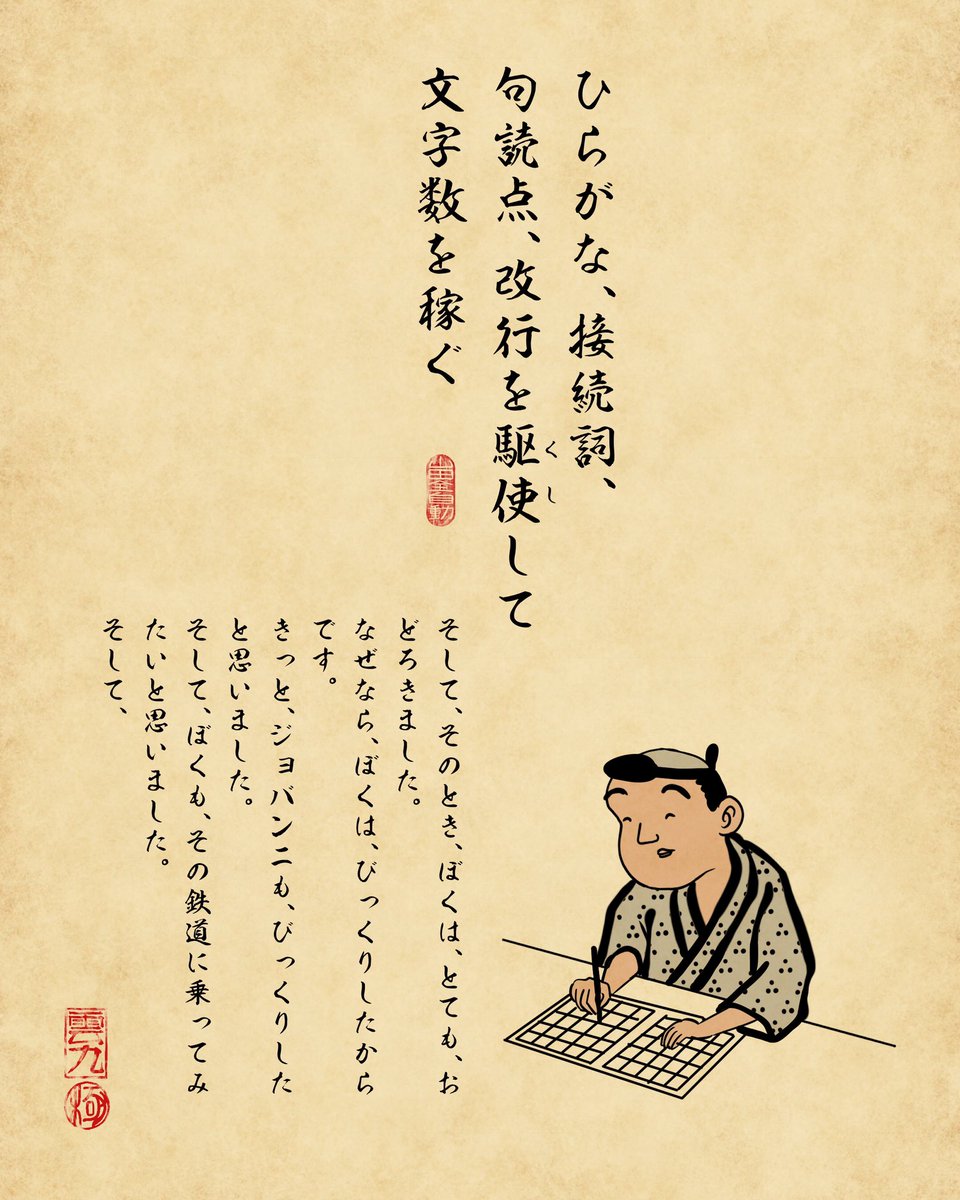 ひらがな、接続詞、
句読点、改行を駆使して
くし
文字数を稼ぐ
そして、そのとき、ぼくは、とても、お
どろきました。
なぜなら、ぼくは、びっくりしたから
です。
きっと、ジョバンニも、びっくりした
と思いました。
そして、ぼくも、その鉄道に乗ってみ
たいと思いました。
そして、